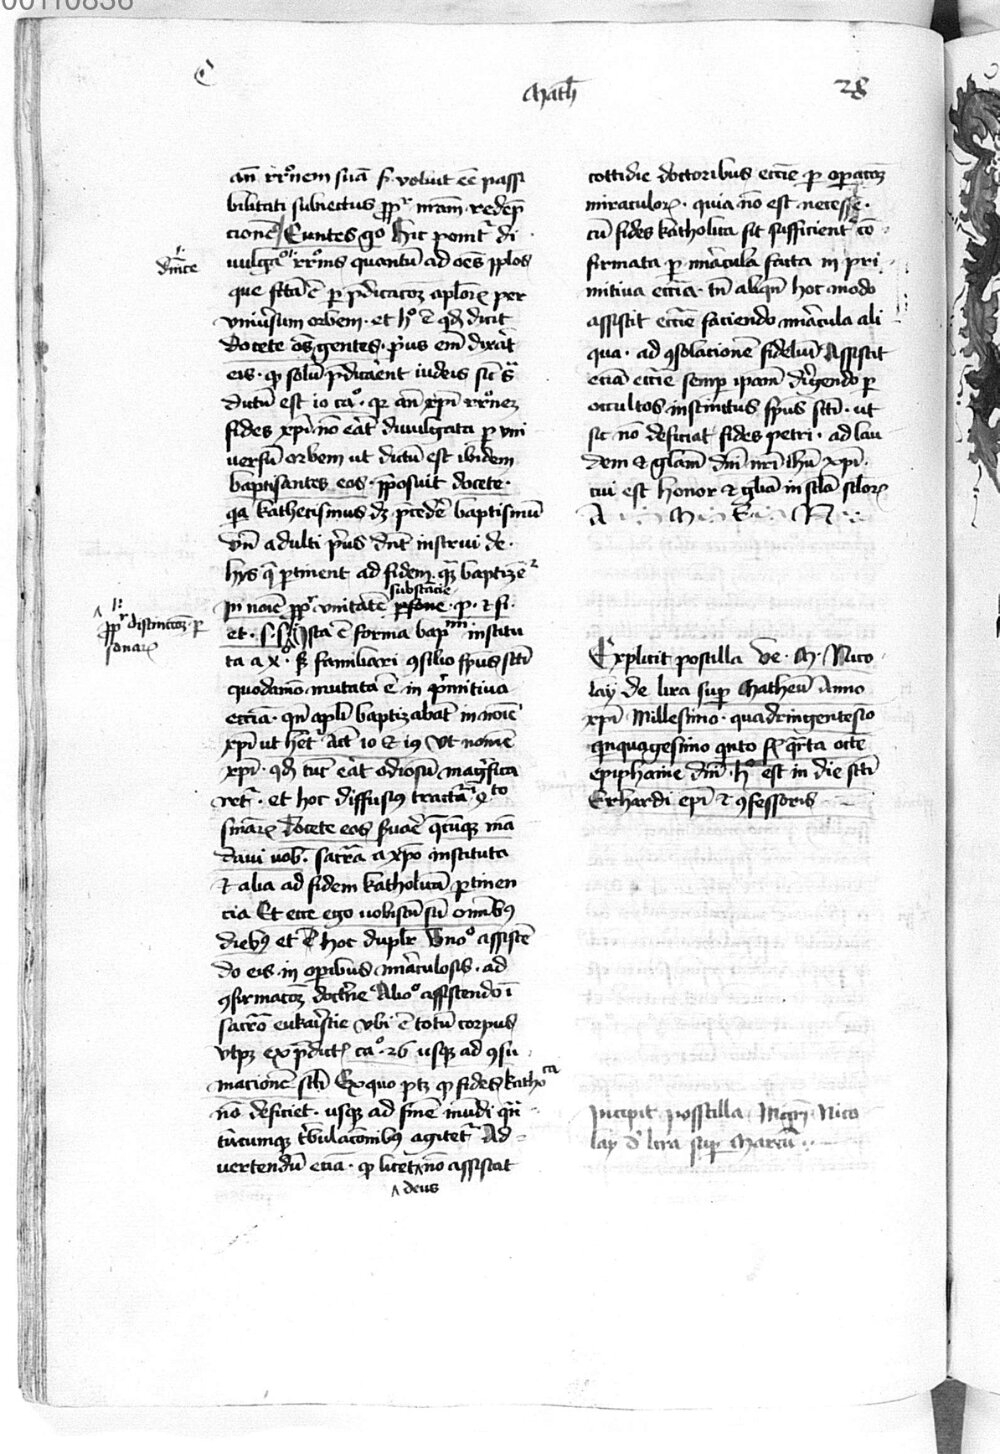 00110836
C
Math
28
an̄ rr̄onem suā s; voluit eē passi
bilitati subiectus ꝓpt̄ nr̄am redēp
cionē Euntes gͦ Hic ponit̄ di
uulgaͦ rr̄onis quantū ad oēs pplos
dn̄ice
que scītā ē per p̄dicatōꝫ apl̄oꝝ per
vniūsum orbem · et hͦ ē qd̄ dicit
docete oēs gentes · p̄us em̄ dixat̄
eis · ꝙ solū p̄dicarēnt iudeis sic s̄
dictū est 10 caͦ · qꝛ an̄ xp̄i rr̄oneꝫ
fides xp̄i nō eāt diuulgata ꝑ vni
uersū orbem ut dictū est ibidem
baptisantes eos · p̄posuit docete ·
qꝛ kathetismus dꝫ p̄cedē baptismū
vn̄ adulti p̄us dn̄t instrui de ·
hys q̄ ꝑtinent ad fidem · qꝫ baptizēt
substācie
in noīe ꝓpt̄ vnitatē ꝑsone · p · et fi ·
ꝓpt̄ distinctōꝫ ꝑ
sonaꝝ
et · s · s Ista ē forma bapmi institu
ta a xͦ · sꝫ familiari ꝯsilio spūs sc̄ti
quodāmō mutata ē in p̄mitiua
ecc̄ia · qn̄ apl̄i baptizabāt in noīe
xp̄i ut hēt̄ Act 10 et 19 vt nomē
xp̄i · qd̄ tūc eāt odiosū magn̄fica
ret̄ · et hoc diffusiꝰ tractāui ꝗto
sn̄iaꝝ docete eos s̄uaē q̄cūqꝫ mā
daui uob̄ · sacrā a xp̄o instituta
et alia ad fidem katholicā ꝑtinen
cia Et ecce ego uobiscū sū omībꝰ
diebꝰ et ē hoc duplr̄ Vnoͦ assistē
do eis · in oꝑibus mirāculosis · ad
ꝯfirmatōꝫ doctr̄ie Alioͦ assistendo ī
sacrō eukaristie vbi ē totū corpus
vt pꝫ ex p̄dict̄ caͦ · 26 usqꝫ ad ꝯsu
mationē scl̄i Ex quo ptꝫ ꝙ fides kathoca
nō deficiet · usqꝫ ad finē mūdi qn̄
tūcumqꝫ tribulacionibꝰ agitet̄ Ad
uertendū eciā · ꝙ licet nō assistat
deus
cottidie doctoribus ecc̄ie ꝑ oꝑatōꝫ
miraculoꝝ · quia nō est necesse ·
cū fides katholica sit sufficient̄ cō
firmata ꝑ mirācula facta in pri
mitiua ecc̄ia · tn̄ aliqn̄ hoc modo
assistit ecc̄ie faciendo mirācula ali
qua · ad ꝯsolacionē fideliū Assistit
eciā ecc̄ie semꝑ ip̄am dirīgendo ꝑ
occultos instinctus spūs sc̄ti · ut
sic nō deficiat fides petri · ad lau
dem et gl̄iam dn̄i nr̄i ihū xp̄i ·
cui est honor et gl̄ia in scl̄a scl̄oꝝ
A M E N
Explicit postilla Ve · M · Nico
lay de lira suꝑ Matheū Anno
xp̄i Millesimo · quadringentesio
qnquagesimo qnto sc̄ꝫ qr̄ta octē
epiphanie dn̄i · hͦ est in die sc̄ti
Erhardi ep̄i et ꝯfessoris
Incipit postilla Mgr̄i Nico
lay d' lira suꝑ Marcū